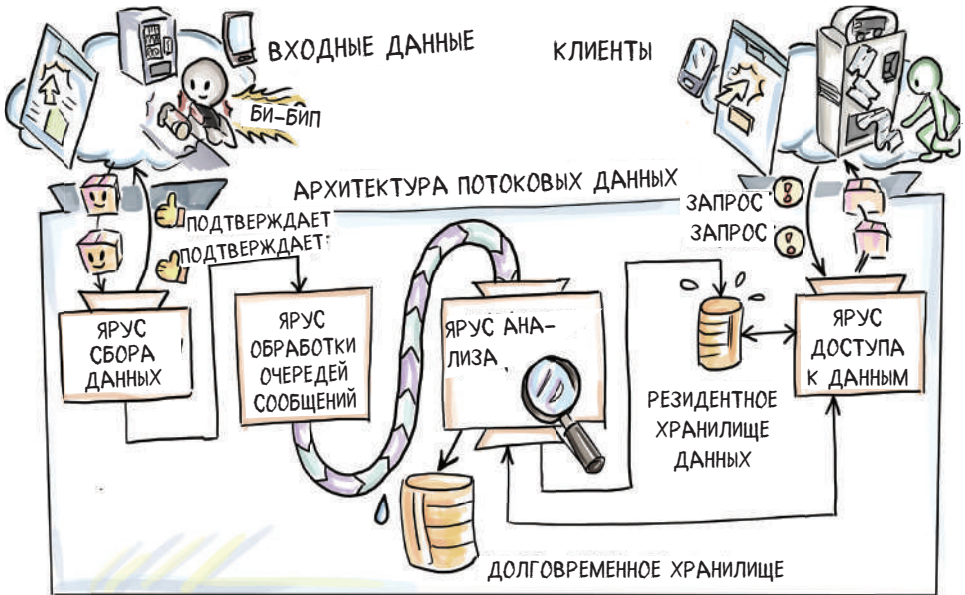 ВХОДНЫЕ ДАННЫЕ
КЛИЕНТЫ
БИ-БИП
АРХИТЕКТУРА ПОТОКОВЫХ ДАННЫХ
ПОДТВЕРЖДАЕТ
ПОДТВЕРЖДАЕТ
ЗАПРОС
ЗАПРОС
ЯРУС
СБОРА
ДАННЫХ
ЯРУС
ОБРАБОТКИ
ОЧЕРЕДЕЙ
СООБЩЕНИЙ
ЯРУС АНА-
ЛИЗА
ЯРУС
ДОСТУПА
К ДАННЫМ
РЕЗИДЕНТНОЕ
ХРАНИЛИЩЕ
ДАННЫХ
ДОЛГОВРЕМЕННОЕ ХРАНИЛИЩЕ